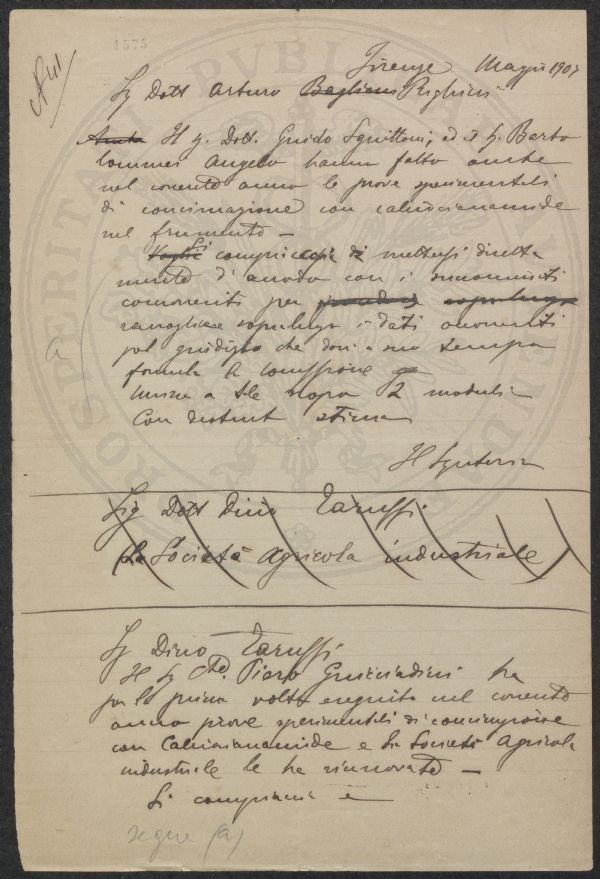 1575
Firenze Maggio 1907
Sg Dott Arturo Righieri
Il Sg. Dott. Guido Squittoni, ed il Sg. Barto
lommei Angelo hanno fatto anche
nel corrente anno le prove sperimentali
di concimazione con calciocianamide
nel frumento —
Si compiaccia di mettersi diretta
mente d'accordo con i
concorrenti per
raccogliere sopraluogo i dati occorrenti
pel giudizio che dovrà a suo tempo
formulare la
2 moduli
Con distinta stima
Il Segretario
Sig Dott Dino Taruffi
La Società Agricola industriale
Sg Dino Taruffi
Il Sg Cte. Piero Guicciardini ha
per la prima volta eseguito nel corrente
anno prove sperimentali di concimazione
con Calciocianamide e la Società Agricola
industriale le ha rinnovate —
Si compiaccia e
segue (a)